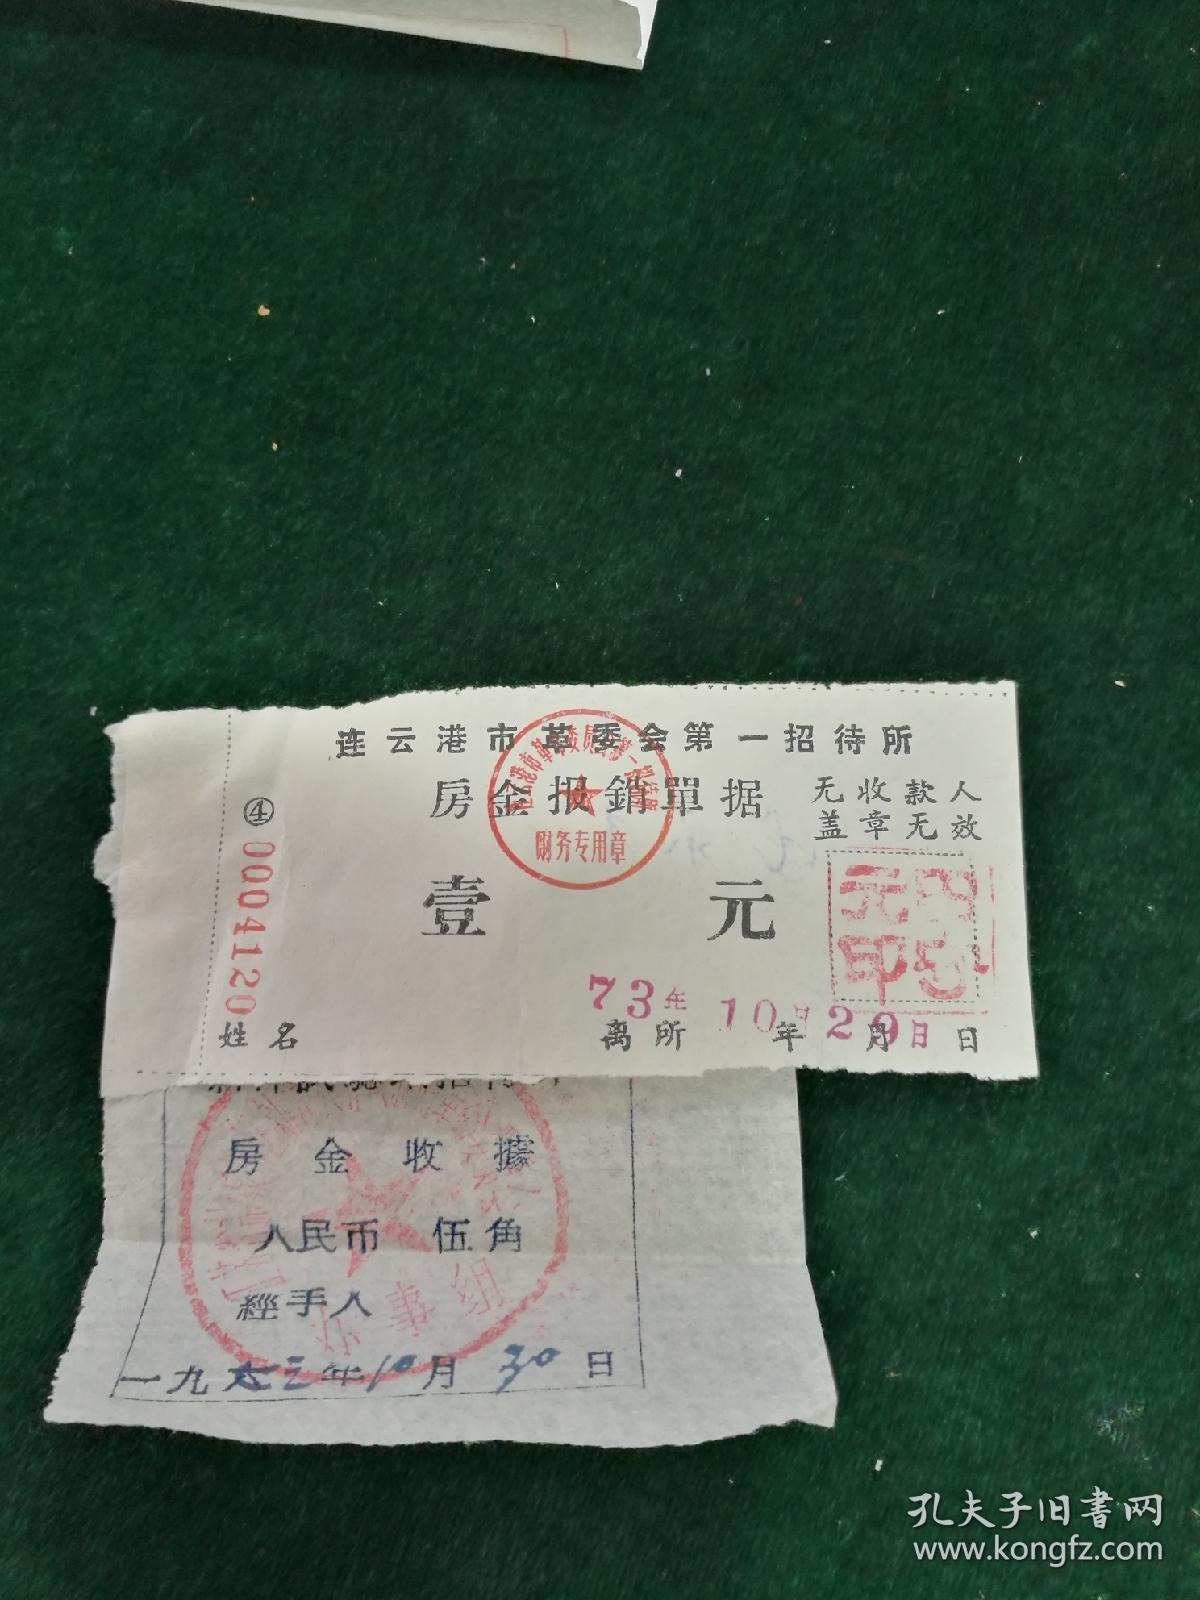 连云港市革委会第一招待所
房金报銷單据
无收款人
盖章无效
④
0004120
财务专用章
壹 元
73年 10月29日
姓名 离所 年 月 日
房金收據
人民币 伍角
經手人
办事组
一九 三年10月30日
孔夫子旧书网
www.kongfz.com